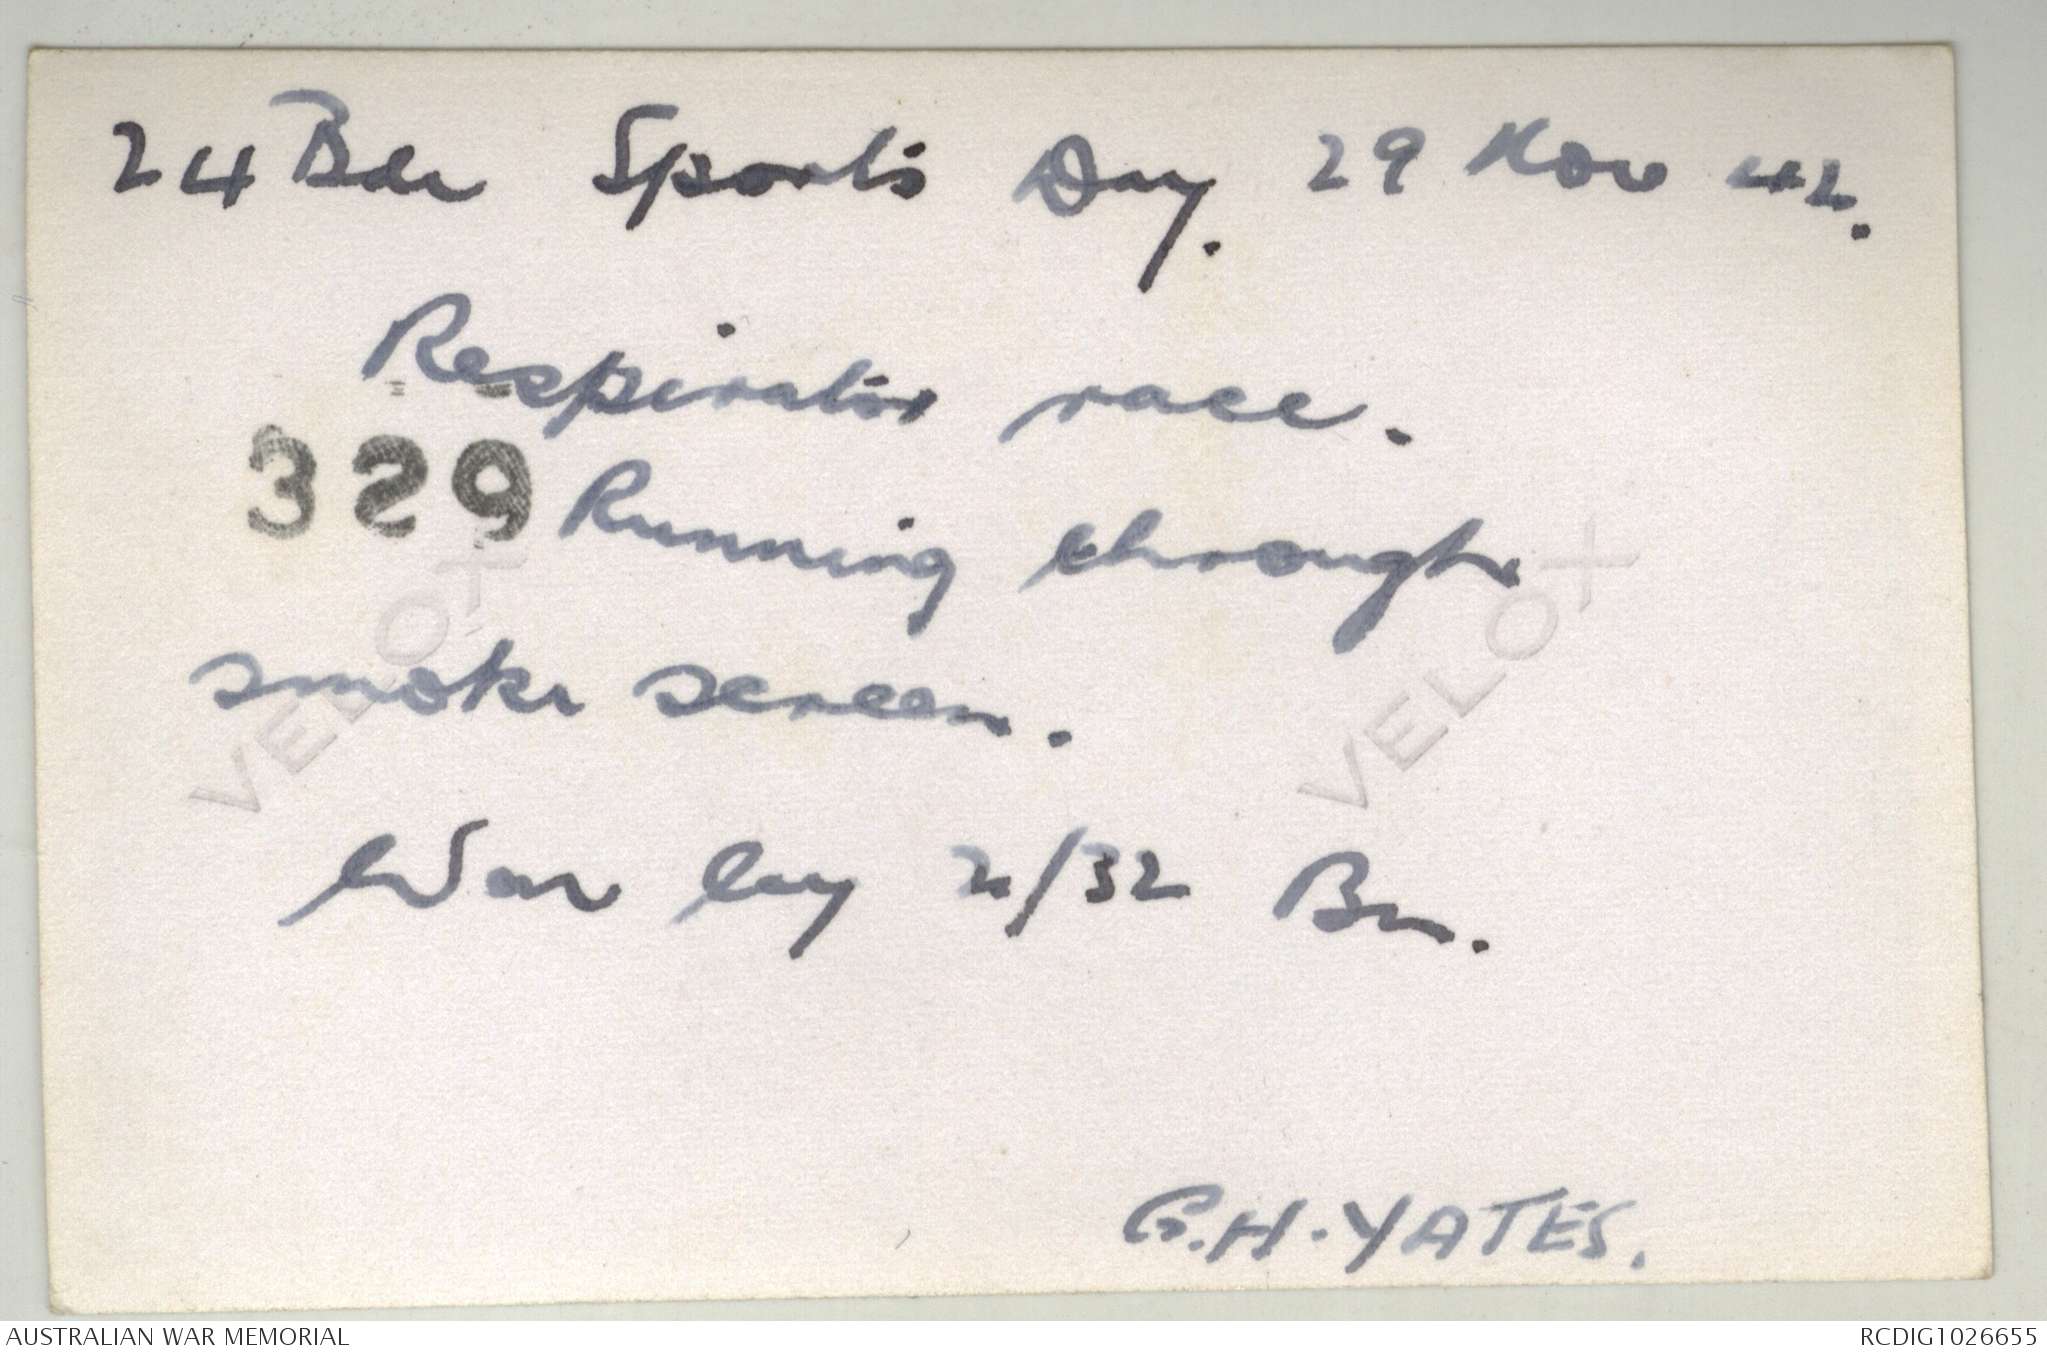 24 Bde Sports Day. 29 Nov 42.
Respirator race.
329 Running through
smoke screen.
Won by 2/32 Bn.
G.H. YATES.
VELOX
VELOX
AUSTRALIAN WAR MEMORIAL
RCDIG1026655